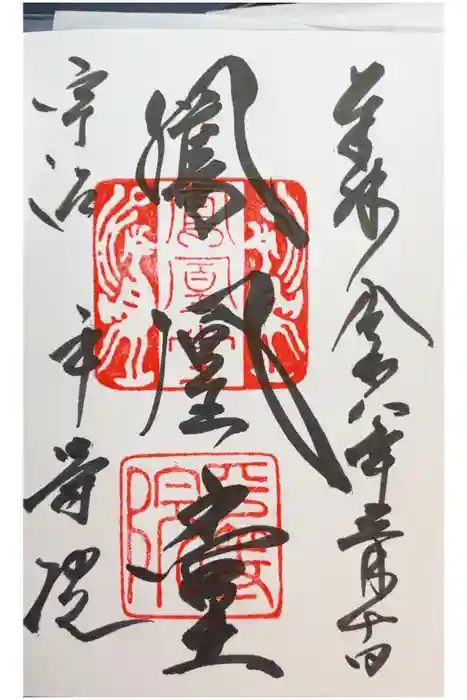 奉拝 令和八年三月十日
鳳凰堂
宇治 平等院
鳳凰堂
平等院